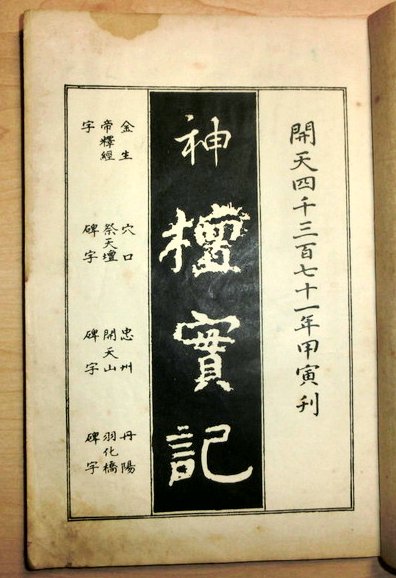 開天四千三百七十一年甲寅刊
神檀實記
金生
帝釋經
字
穴口
祭天壇
碑字
忠州
開天山
碑字
丹陽
羽化橋
碑字